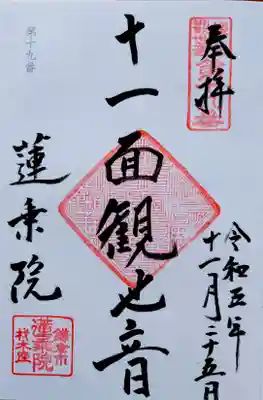 奉拝
令和五年
十一月二十五日
十一面観世音
蓮乗院
第十九番
鎌倉市
蓮乗院
材木座